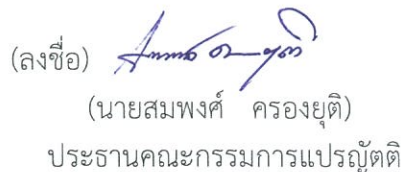 (ลงชื่อ)
(นายสมพงศ์ ครองยุติ)
ประธานคณะกรรมการแปรญัตติ